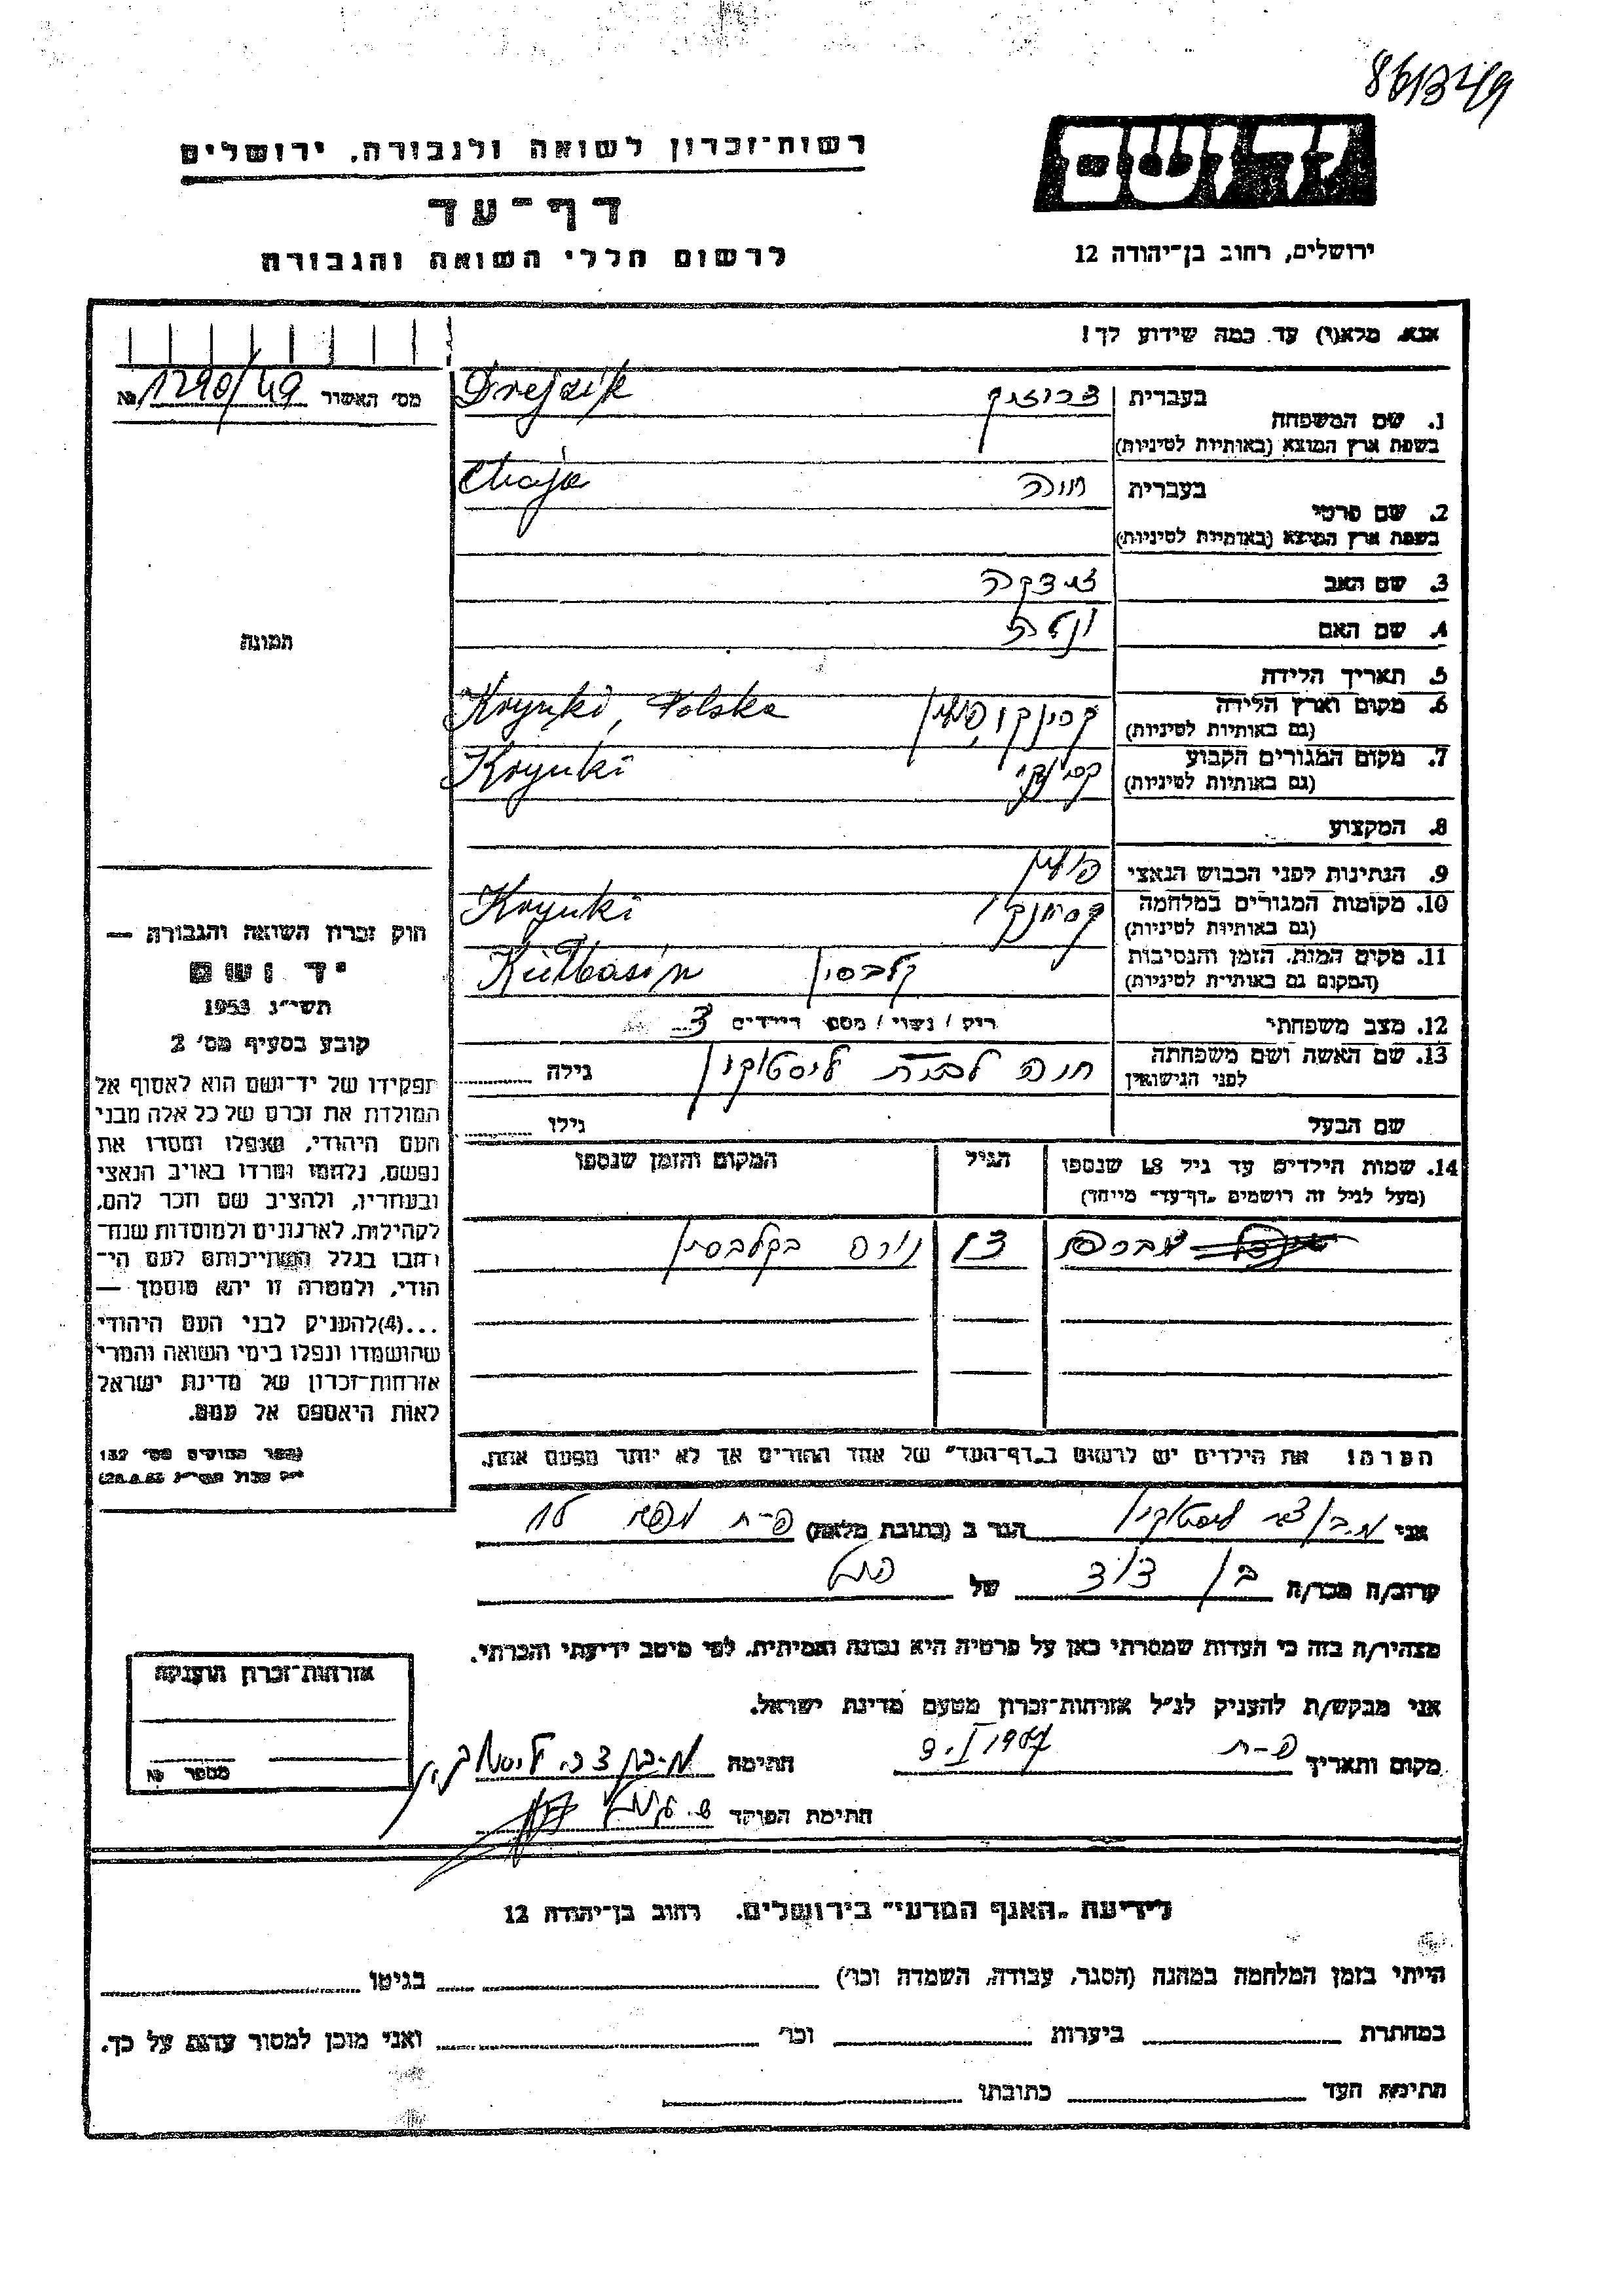 רשות-זכרון לשואה ולגבורה, ירושלים
דף-עד
לרשום חללי השואה והגבורה
יד ושם
ירושלים, רחוב בן-יהודה 12
אנא, מלא(י) עד כמה שידוע לך!
מס' האשור 1290/49 №
1. שם המשפחה
בעברית
בשפת ארץ המוצא (באותיות לטיניות)
Drejzik
2. שם פרטי
בעברית חיה
בשפת ארץ המוצא (באותיות לטיניות)
Chaja
3. שם האב
4. שם האם
5. תאריך הלידה
6. מקום וארץ הלידה
(גם באותיות לטיניות)
Krynki, Polska
7. מקום המגורים הקבוע
(גם באותיות לטיניות)
Krynki
8. המקצוע
9. הנתינות לפני הכבוש הנאצי פולין
10. מקומות המגורים במלחמה
(גם באותיות לטיניות)
Krynki
11. מקום המות, הזמן והנסיבות
(המקום גם באותיות לטיניות)
קלבסין Kiełbasin
12. מצב משפחתי רוק / נשוי / מספר הילדים
13. שם האשה ושם משפחתה
לפני הנישואין
חיה לבית גילה
שם הבעל גילו
14. שמות הילדים עד גיל 18 שנספו
(מעל לגיל זה רושמים "דף-עד" מיוחד)
הגיל
המקום והזמן שנספו
אברהם בקלבסין
הערה: את הילדים יש לרשום ב"דף-העד" של אחד ההורים אך לא יותר מפעם אחת.
תמונה
חוק זכרון השואה והגבורה —
יד ושם
תשי"ג 1953
קובע בסעיף מס' 2
תפקידו של יד-ושם הוא לאסוף אל
המולדת את זכרם של כל אלה מבני
העם היהודי, שנפלו ומסרו את
נפשם, נלחמו ומרדו באויב הנאצי
ובעוזריו, ולהציב שם וזכר להם,
לקהילות, לארגונים ולמוסדות שנח-
רבו בגלל השתייכותם לעם הי-
הודי, ולמטרה זו יהא מוסמך —
...(4) להעניק לבני העם היהודי
שהושמדו ונפלו בימי השואה והמרי
אזרחות-זכרון של מדינת ישראל
לאות היאספם אל עמם.
(ספר החוקים מס' 132
אני הגר ב (כתובת מלאה) פ-ת
קרוב/ה מכר/ה בן דוד של
מצהיר/ה בזה כי העדות שמסרתי כאן על פרטיה היא נכונה ואמיתית, לפי מיטב ידיעתי והכרתי.
אני מבקש/ת להעניק לנ"ל אזרחות-זכרון מטעם מדינת ישראל.
מקום ותאריך פ-ת חתימה
חתימת הפוקד
אזרחות-זכרון הוענקה
מספר №
לידיעת "האגף המדעי" בירושלים, רחוב בן-יהודה 12
הייתי בזמן המלחמה במחנה (הסגר, עבודה, השמדה וכו') בגיטו
במחתרת ביערות וכו' ואני מוכן למסור עדות על כך.
חתימת העד כתובתו